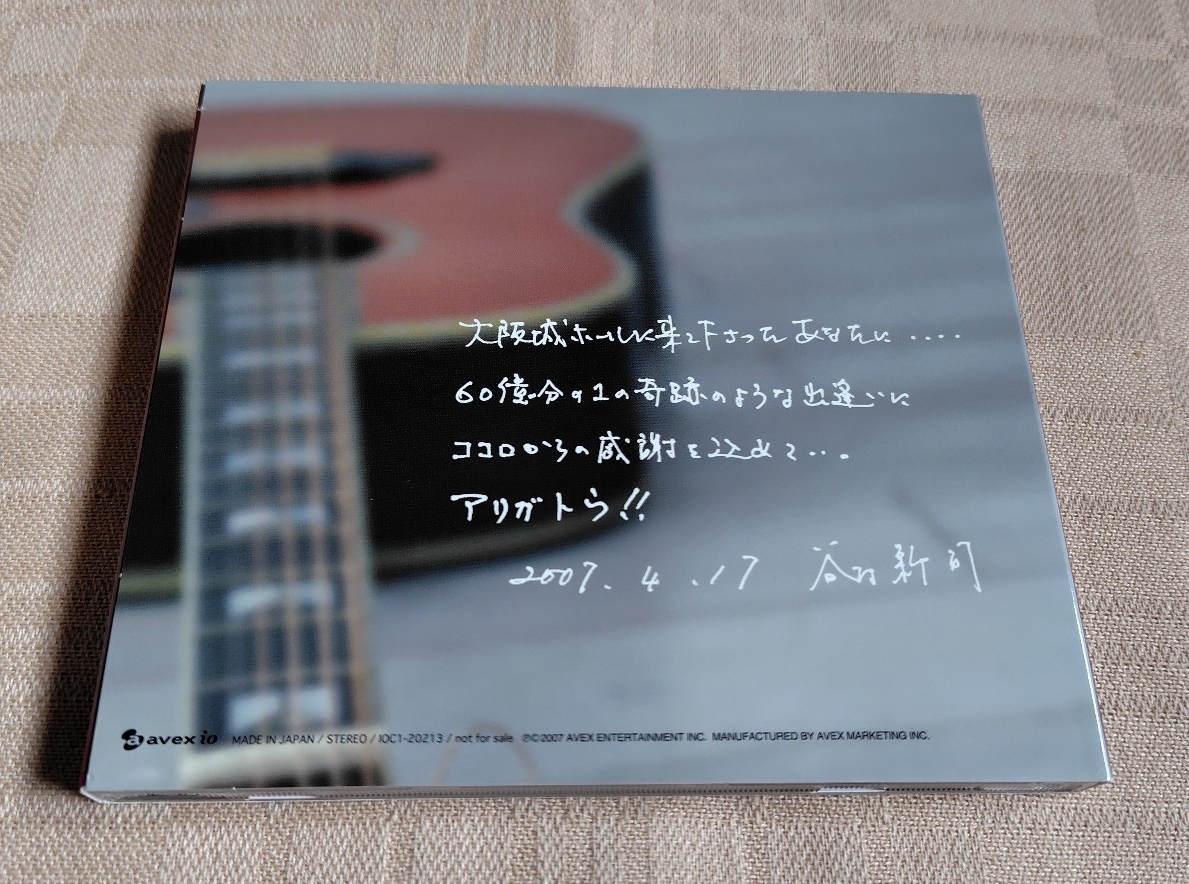 大阪城ホールに来て下さったあなたに....
60億分の1の奇跡のような出逢いに
ココロからの感謝を込めて...
アリガトう!!
2007.4.17 谷村新司
avex io MADE IN JAPAN / STEREO / IOC1-20213 / not for sale ℗©2007 AVEX ENTERTAINMENT INC. MANUFACTURED BY AVEX MARKETING INC.